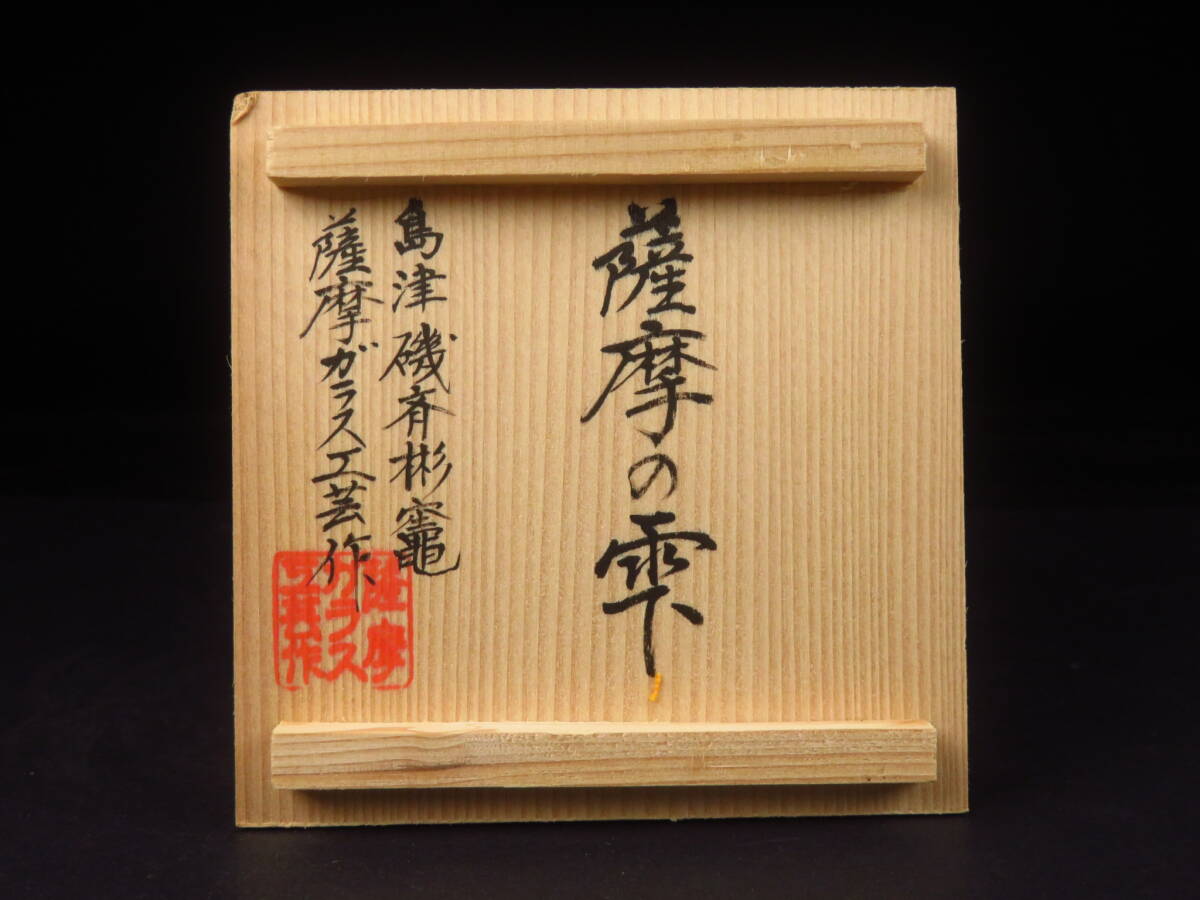 薩摩の雫
島津磯斉彬竈
薩摩ガラス工芸作
薩摩
ガラス
工芸作